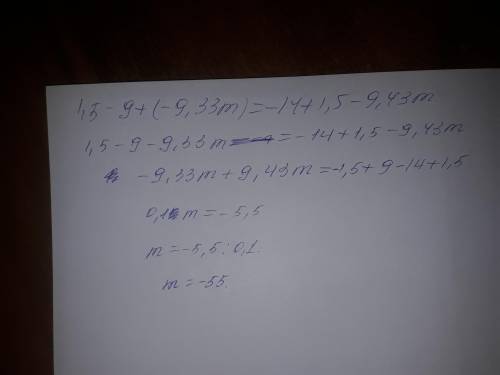 1,5 - 9 + (-9,33m) = -14 + 1,5 - 9,43m
1,5 - 9 - 9,33m = -14 + 1,5 - 9,43m
-9,33m + 9,43m = -1,5 + 9 - 14 + 1,5
0,1 m = -5,5
m = -5,5 : 0,1.
m = -55.